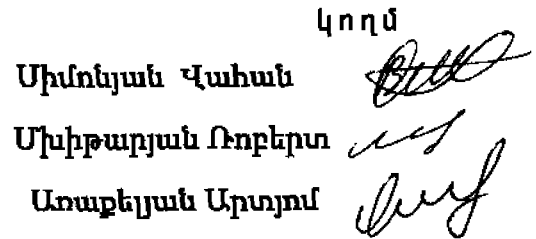 կողմ
Սիմոնյան Վահան
Մխիթարյան Ռոբերտ
Առաքելյան Արտյոմ